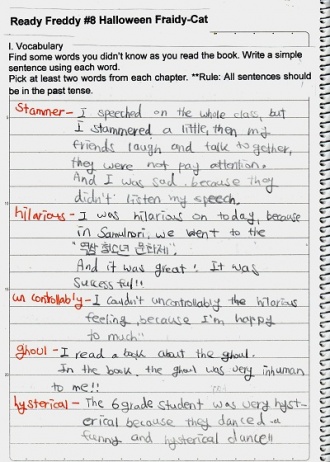 Ready Freddy #8 Halloween Fraidy-Cat
I. Vocabulary
Find some words you didn't know as you read the book. Write a simple
sentence using each word.
Pick at least two words from each chapter. **Rule: All sentences should
be in the past tense.
Stammer - I speeched on the whole class, but
I stammered a little, then my
friends laugh and talk together,
they were not pay attention.
And I was sad. because they
didn't listen my speech.
hilarious - I was hilarious on today, because
in Samulnori, we went to the
"역삼 청소년 문화제".
And it was great! It was
successful!!
un controllably - I couldn't uncontrollably the hilarious
feeling, because I'm happy
to much~
ghoul - I read a book about the ghoul.
In the book, the ghoul was very inhuman
to me!!
hysterical - The 6 grade student was very hyst-
erical because they danced a
funny and hysterical dance!!